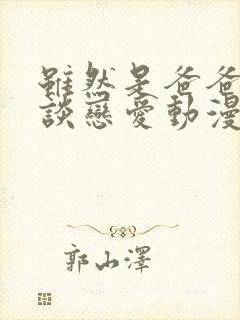 雖然是爸爸
談戀愛動漫
郭山澤